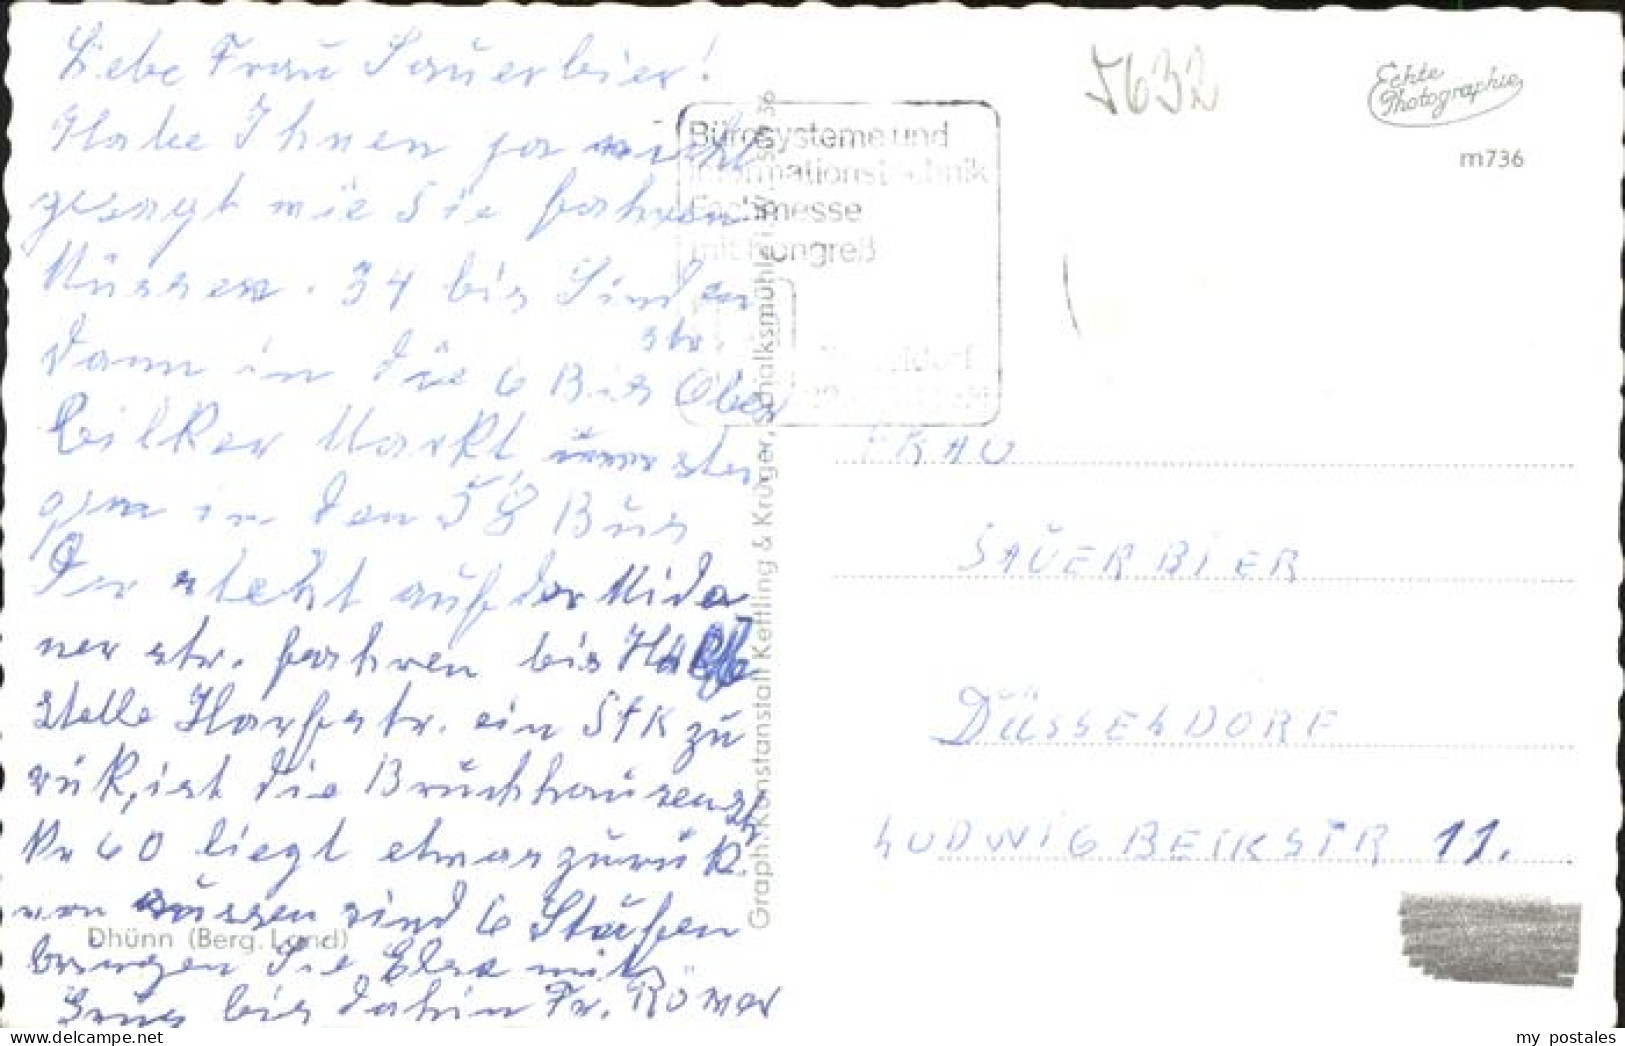 Liebe Frau Sauerbier!
Habe Ihnen ja nicht
gesagt wie Sie fahren
Müssen. 34 bis Linden
str.
dann in die 6 Bis Ober
bilker Markt, umstei
gen in den 58 Bus
Der steht auf der
ner str. fahren bis Halte
stelle Harfestr. ein Stk zu
rük, ist die Bruchhausenstr
Nr 60 liegt etwas zurük.
von aussen sind 6 Stufen
bringen Sie Elsa mit
Grus bis dahin Fr. Römer
Dhünn (Berg. Land)
Graph. Kunstanstalt Kettling & Krüger, Schalksmühle i. W.
Bürosysteme und
Informationstechnik
Fachmesse
mit Kongreß
5632
Echte
Photographie
m736
FRAU
SAUERBIER
DÜSSELDORF
LUDWIG BECKSTR 11.
my postales